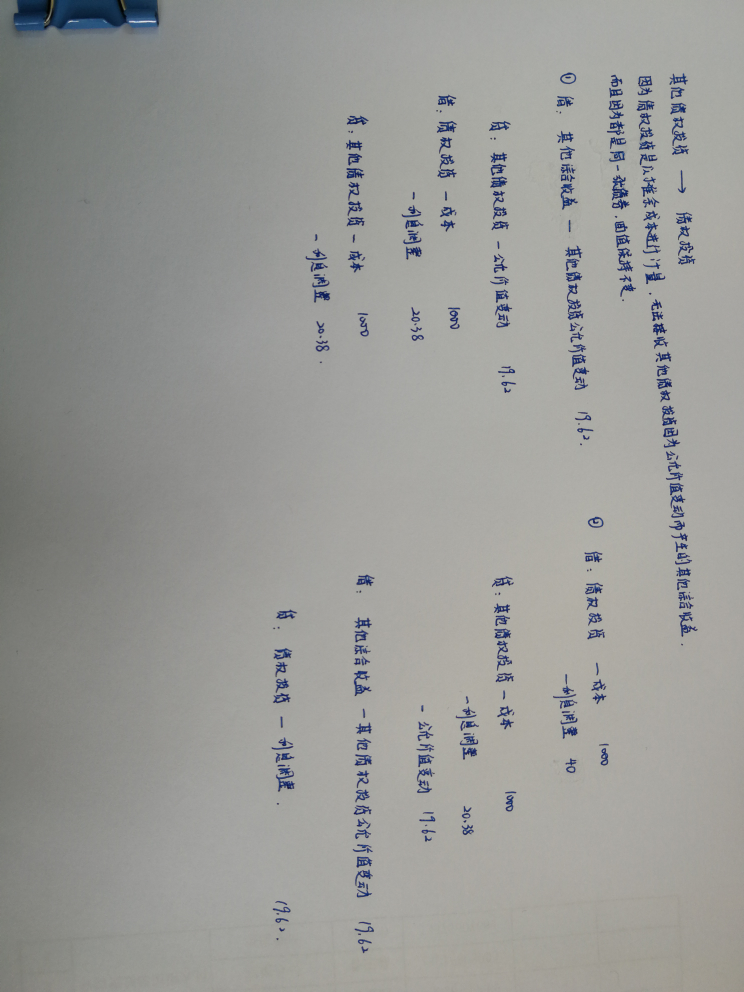 其他债权投资 → 债权投资
因为债权投资是以摊余成本进行计量，无法接收其他债权投资因为公允价值变动而产生的其他综合收益.
而且因为都是同一张债券，面值保持不变.
① 借： 其他综合收益 — 其他债权投资公允价值变动 19.62.
贷：其他债权投资 — 公允价值变动 19.62
借：债权投资 — 成本 1000
— 利息调整 20.38
贷：其他债权投资 — 成本 1000
— 利息调整 20.38.
② 借：债权投资 — 成本 1000
— 利息调整 40
贷：其他债权投资 — 成本 1000
— 利息调整 20.38
— 公允价值变动 19.62
借： 其他综合收益 — 其他债权投资公允价值变动 19.62
贷： 债权投资 — 利息调整. 19.62.